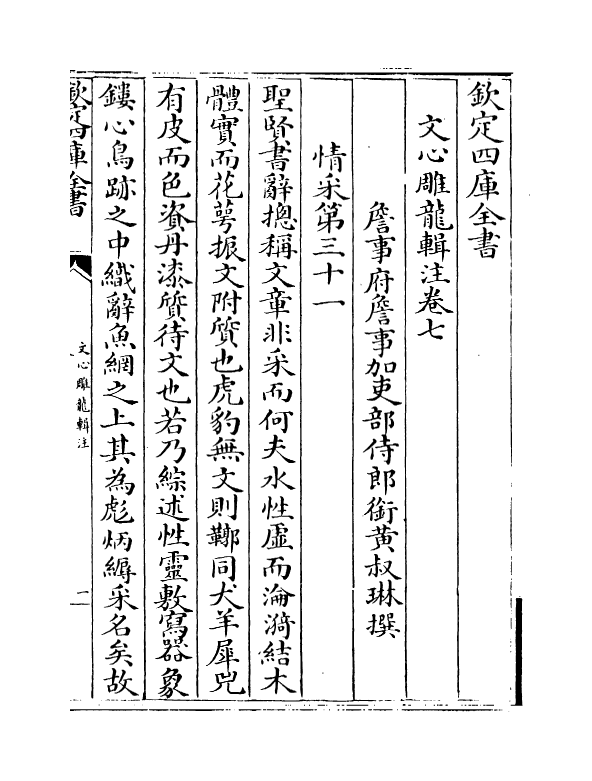 欽定四庫全書
文心雕龍輯注卷七
詹事府詹事加吏部侍郎銜黃叔琳撰
情采第三十一
聖賢書辭摠稱文章非采而何夫水性虛而淪漪結木
體實而花萼振文附質也虎豹無文則鞹同犬羊犀兕
有皮而色資丹漆質待文也若乃綜述性靈敷寫器象
鏤心鳥跡之中織辭魚網之上其為彪炳縟采名矣故
欽定四庫全書
文心雕龍輯注